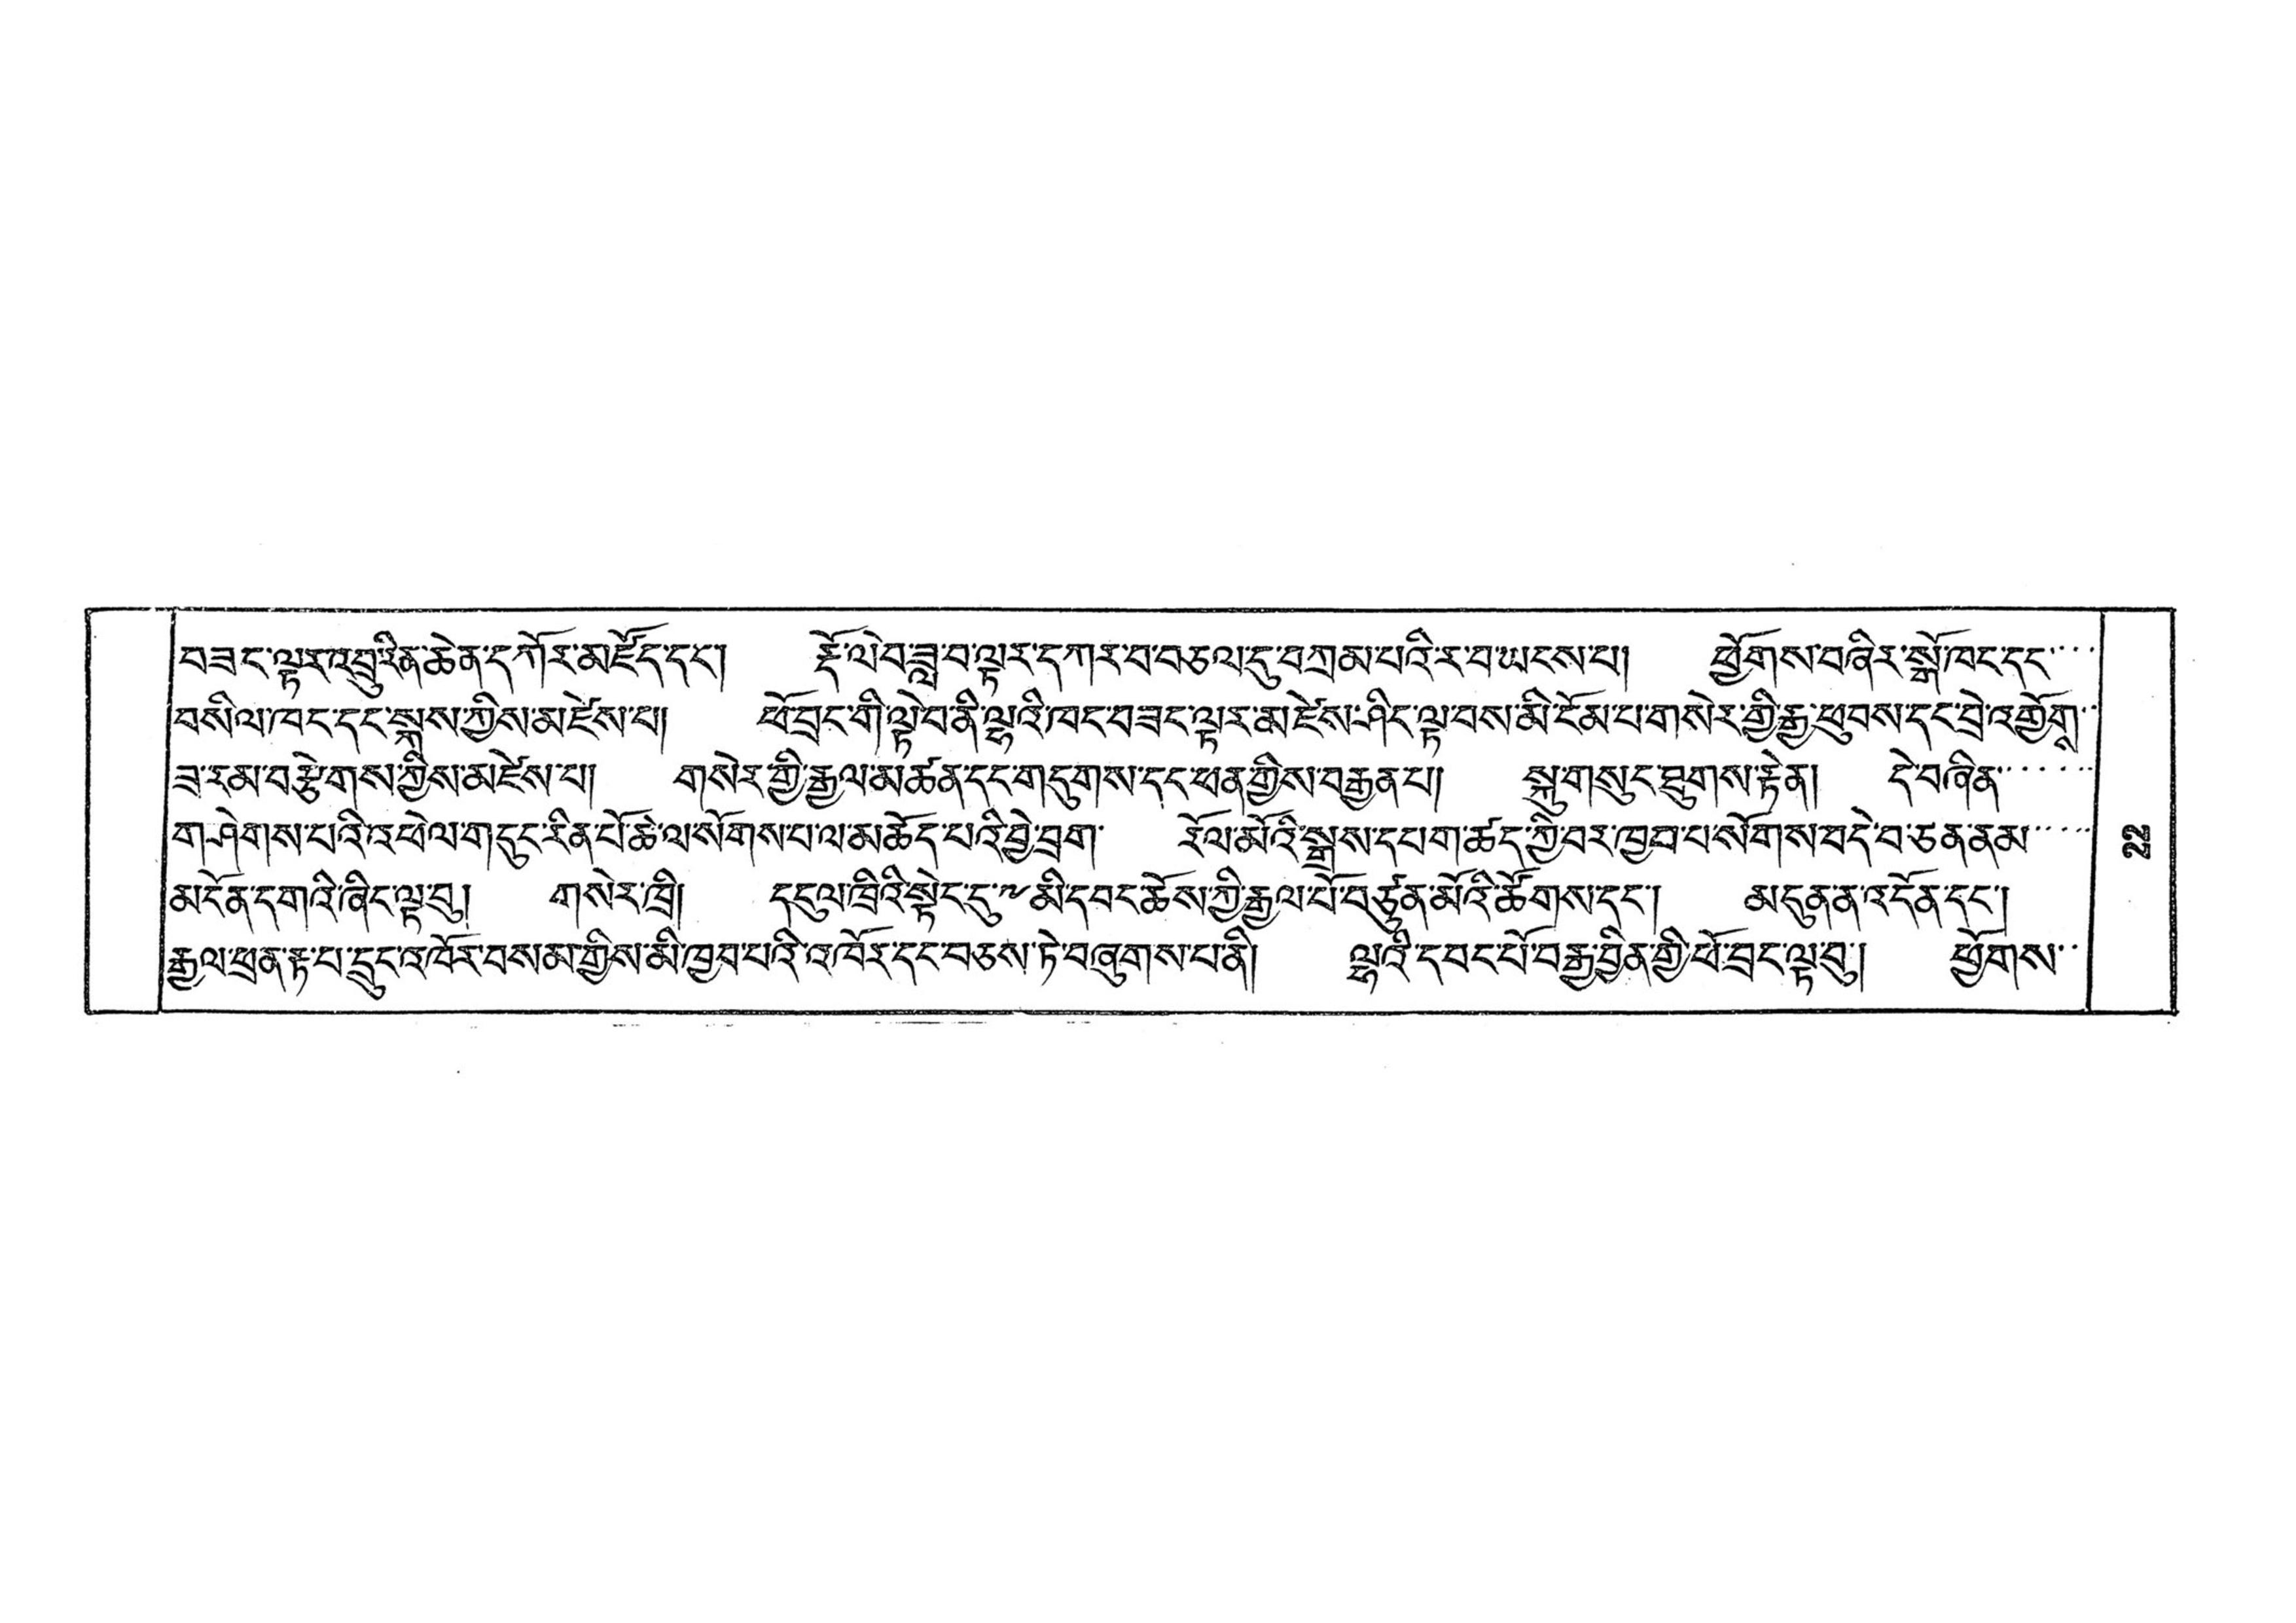 བཟང་ལྟར་འབྲུ་རིན་ཆེན་དཀོར་མཛོད་དང་།  རྡོ་ལེབ་ཟླ་བ་ལྟར་དཀར་བ་བཅལ་དུ་བཀྲམ་པའི་ར་བ་ཡངས་པ།  ཕྱོགས་བཞིར་སྒོ་ཁང་དང་
བསིལ་ཁང་དང་སྐས་ཀྱིས་མཛེས་པ།  ཕོ་བྲང་གི་ལྟེ་བ་ནི་ལྷའི་ཁང་བཟང་ལྟར་མཛེས་ཤིང་ལྟ་བས་མི་ངོམ་པ་གསེར་གྱི་རྒྱ་ཕུབས་དང་བྲེ་འགྱོགྭ་
ཟ་རམ་བརྩེགས་ཀྱིས་མཛེས་པ།  གསེར་གྱི་རྒྱལ་མཚན་དང་གདུགས་དང་ཕན་གྱིས་བརྒྱན་པ།  སྐུ་གསུང་ཐུགས་རྟེན།  དེ་བཞིན་
གཤེགས་པའི་འཕེལ་གདུང་རིན་པོ་ཆེ་ལ་སོགས་པ་ལ་མཆོད་པའི་བྱེ་བྲག་  རོལ་མོའི་སྒྲས་དཔག་ཚད་ཀྱི་བར་ཁྱབ་པ་སོགས་བདེ་བ་ཅན་ནམ་
མངོན་དགའི་ཞིང་ལྟ་བུ།  གསེར་ཁྲི།  དངུལ་ཁྲིའི་སྟེང་དུ་༧མི་དབང་ཆོས་ཀྱི་རྒྱལ་པོ་བཙུན་མོའི་ཚོགས་དང་།  མདུནན་འདོན་དང་།
རྒྱལ་ཕྲན་རྟ་པ་དྲུང་འཁོར་བསམ་གྱིས་མི་ཁྱབ་པའི་འཁོར་དང་བཅས་ཏེ་བཞུགས་པ་ནི།  ལྷའི་དབང་པོ་བརྒྱ་བྱིན་གྱི་ཕོ་བྲང་ལྟ་བུ།  ཕྱོགས་